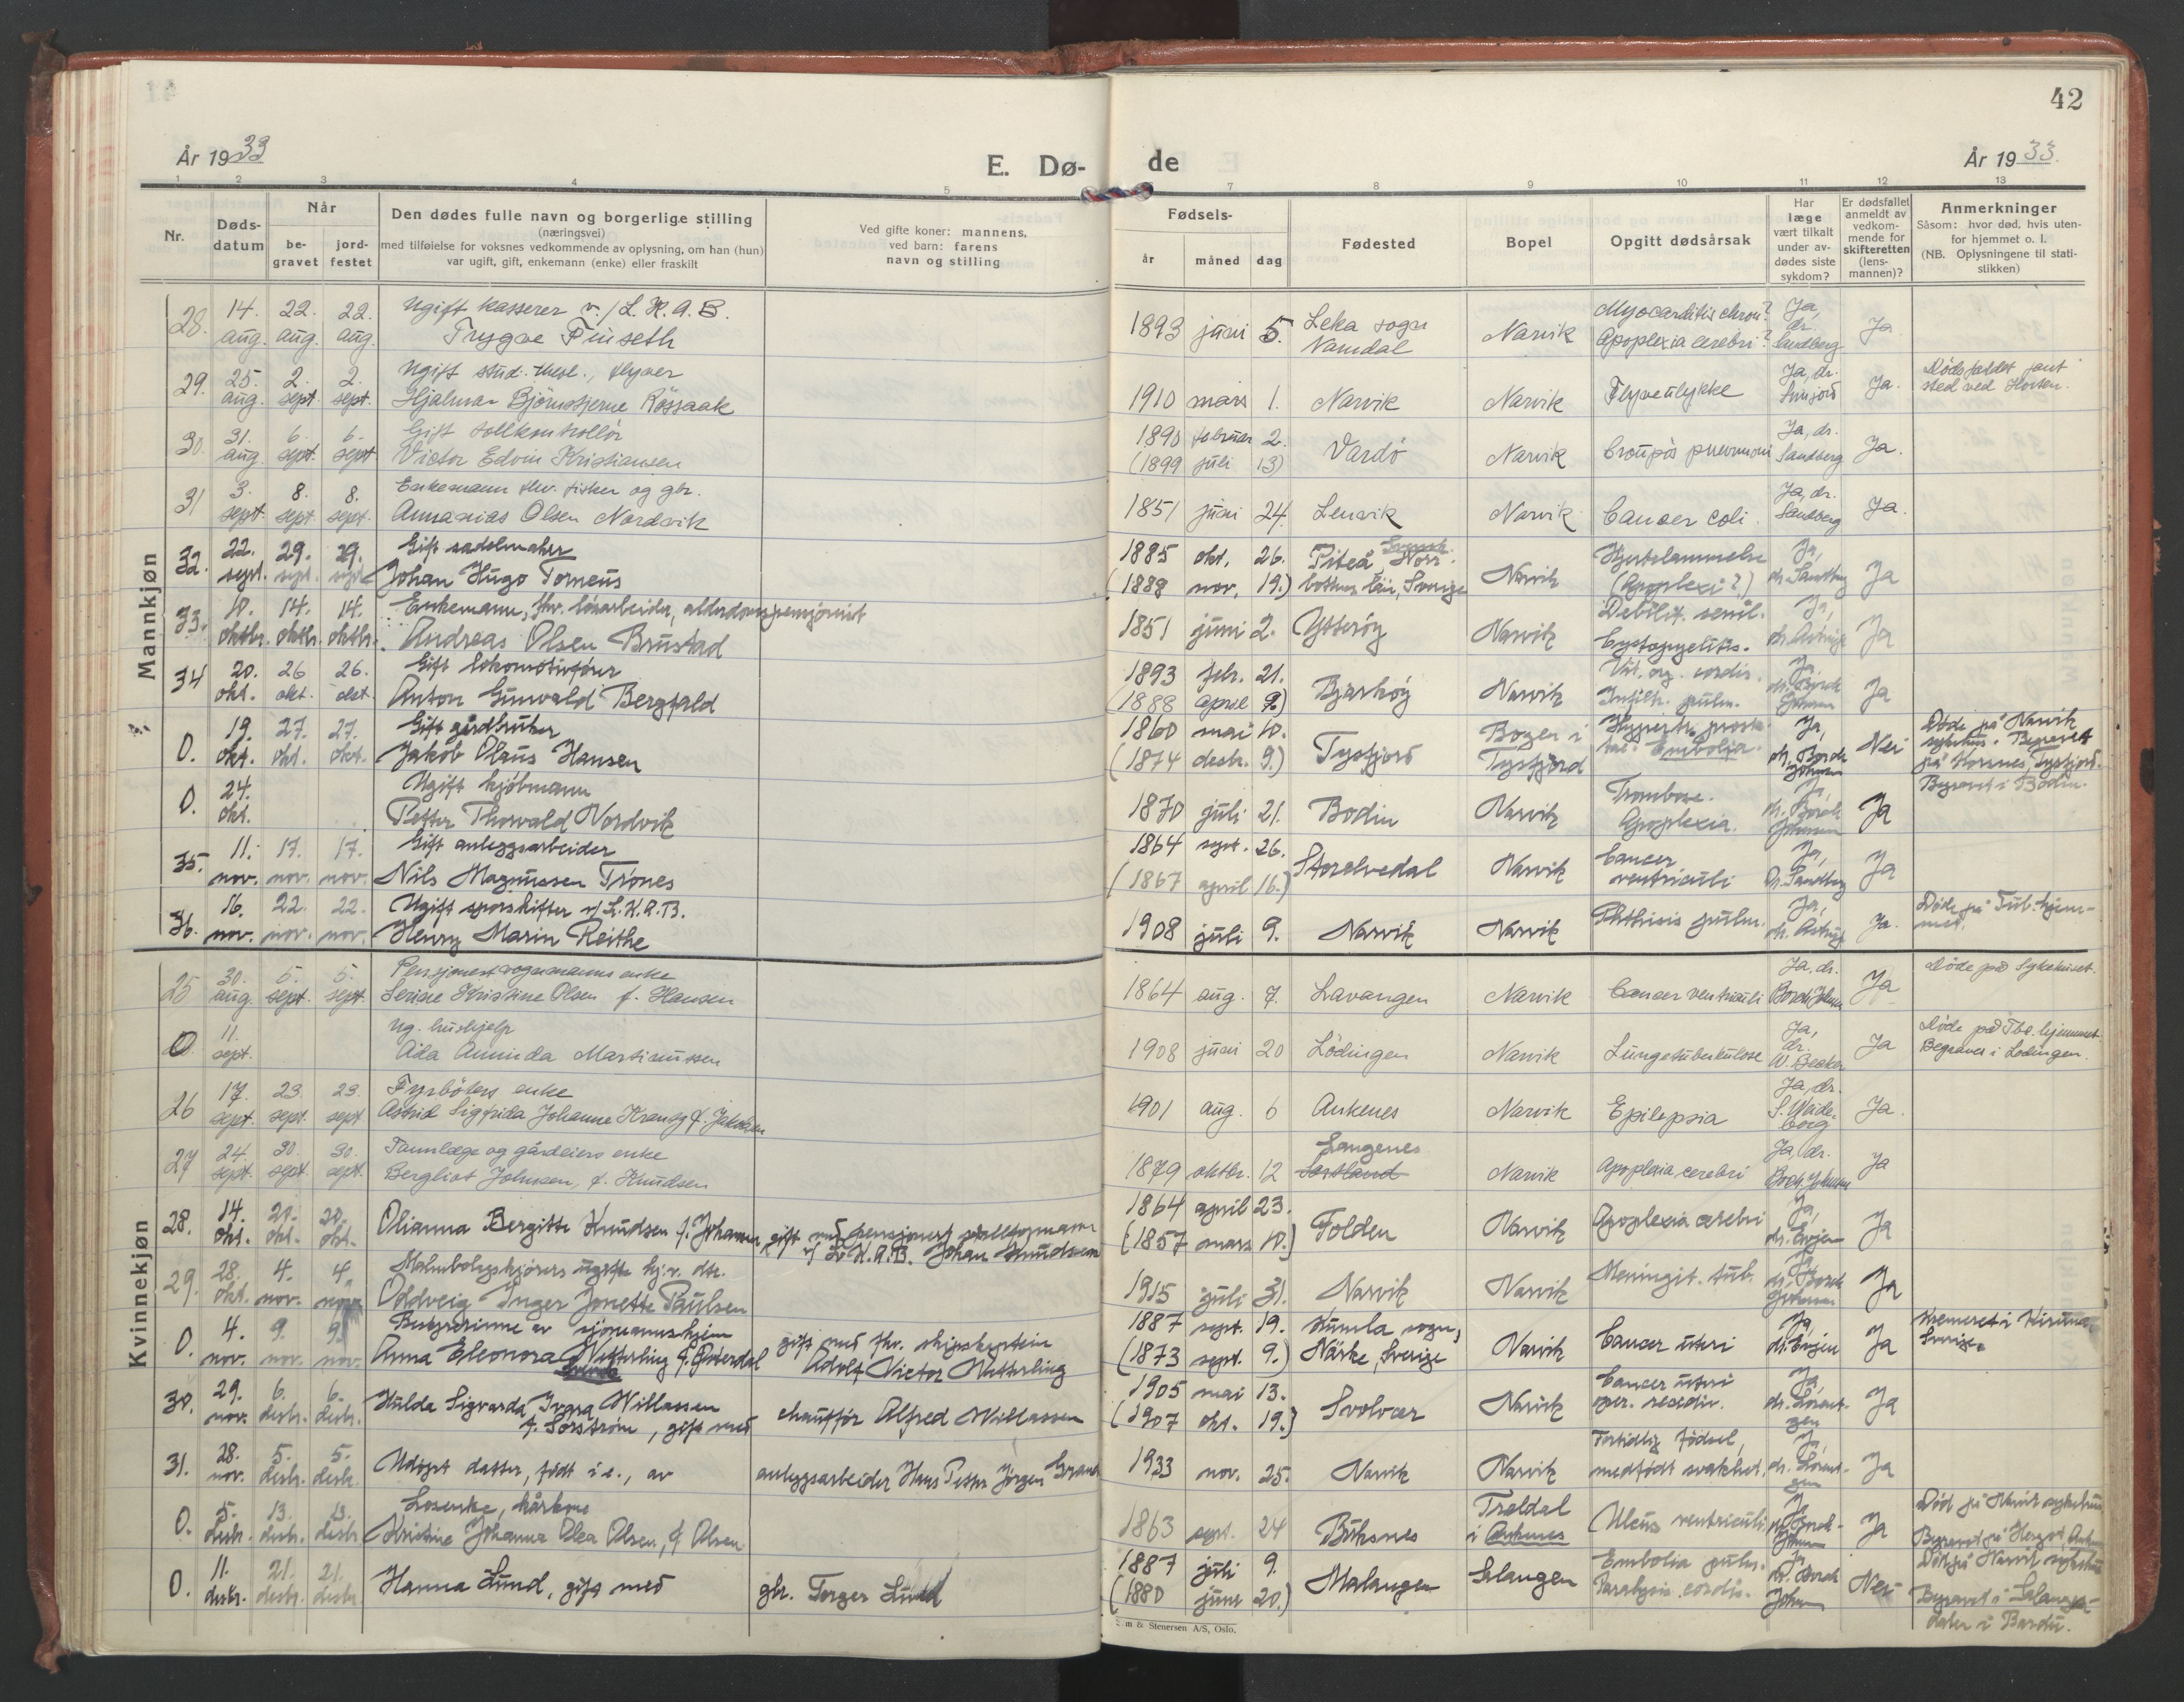 42
År 1933
E. Dø-
de
År 1933.
1 2 3 4 5
7 8 9 10 11 12 13
Nr.
Døds-
datum
Når
be-
gravet
jord-
festet
Den dødes fulle navn og borgerlige stilling
(næringsvei)
med tilføielse for voksnes vedkommende av oplysning, om han (hun)
var ugift, gift, enkemann (enke) eller fraskilt
Ved gifte koner: mannens,
ved barn: farens
navn og stilling
Fødsels-
år måned dag
Fødested
Bopel
Opgitt dødsårsak
Har
læge
vært tilkalt
under av-
dødes siste
sykdom?
Er dødsfallet
anmeldt av
vedkom-
mende for
skifteretten
(lens-
mannen)?
Anmerkninger
Såsom: hvor død, hvis uten-
for hjemmet o. l.
(NB. Oplysningene til stati-
stikken)
Mannkjøn
28. 14. aug. 22. aug. 22. aug. Ugift kasserer v./L.K.A.B.
Trygve Finseth
1893 juni 5. Leka sogn Namdal Narvik Myocarditis chron? Apoplexia cerebri? Ja, dr. Sandberg Ja
29. 25. aug. 2. sept. 2. sept. Ugift stud. theol., flyver
Hjalmar Björnstjerne Rössaak
1910 mars 1. Narvik Narvik Flyveulykke Ja, dr. Ja. Dödsfaldet fant sted ved Horten.
30. 31. aug. 6. sept. 6. sept. Gift tollkontrollör
Victor Edvin Kristiansen
1890 februar 2. (1899 juli 13) Vardö Narvik Croupös pneumoni Ja, dr. Sandberg Ja.
31 3. sept. 8. sept. 8. sept. Enkemann fhv. fisker og gbr.
Annanias Olsen Nordvik
1851 juni 24. Lenvik Narvik Cancer coli. Ja, dr. Sandberg Ja.
32. 22. sept. 29. sept. 29. sept. Gift sadelmaker
Johan Hugo Torneus
1885 okt. 26. (1888 nov. 19.) Piteå, Norr- bottens län, Sverige Svensk. Narvik Hjertelammelse (Apoplexi?) Ja, dr. Sandberg Ja
33. 10. oktbr. 14. oktbr. 14. oktbr. Enkemann, fhv. løsarbeider, alderdomspensjonist
Andreas Olsen Brustad
1851 juni 2. Ytterøy Narvik Debilit. senil. Cystopyelitis. Ja, dr. Astrup Ja
34 20. okt. 26 okt. 26. okt. Gift lokomotivfører
Anton Gunvald Bergfald
1893 febr. 21. (1888 april 2.) Bjarkøy Narvik Vit. org. cordis. Infiltr. pulm. Ja, dr. Borch Johnsen Ja
0. 19. okt. 27. okt. 27. okt. Gift gårdbruker
Jakob Olaus Hansen
1860 mai 10. (1874 desbr. 9.) Tysfjord Bogen i Tysfjord Hypertr. prosta- tae. Embolia. Ja, dr. Borch Johnsen Nei Døde på Narvik sykehus. Begravet på Korsnes, Tysfjord.
0. 24. okt. Ugift kjøbmann
Petter Thorvald Nordvik
1870 juli 21. Bodin Narvik Trombose. Apoplexia. Ja, dr. Borch Johnsen Ja Begravet i Bodin.
35. 11. nov. 17. nov. 17. nov. Gift anleggsarbeider
Nils Magnussen Trones
1864 sept. 26. (1867 april 16.) Storelvedal Narvik Cancer ventriculi Ja, dr. Sandberg Ja
36. 16. nov. 22. nov. 22. nov. Ugift sporskifter v/ L.K.A.B.
Henry Marin Reithe
1908 juli 9. Narvik Narvik Phthisis pulm. Ja, dr. Astrup Ja. Døde på Tub.hjem- met.
Kvinnekjøn
25 30. aug. 5. sept. 5. sept. Pensjonert vognmanns enke
Serine Kristine Olsen f. Hansen
1864 aug. 7. Lavangen Narvik Cancer ventriculi Ja, dr. Borch Johnsen Ja Döde på Sykehuset.
0 11. sept. Ug. hushjelp
Ada Aminda Martinussen
1908 juni 20 Lödingen Narvik Lungetuberkulose Ja, dr. W. Becker Ja Döde på Tbc. hjemmet. Begraves i Lödingen.
26 17. sept. 23. sept. 23. sept Fyrböters enke
Astrid Sigfrida Johanne Kransy f. Jakobsen
1901 aug. 6 Ankenes Narvik Epilepsia Ja, dr. S. Weide- borg Ja.
27 24. sept. 30. sept. 30. sept. Tannlæge og gårdeiers enke
Bergliot Johnsen, f. Knudsen
1879 oktbr. 12 Langenes Sortland Narvik Apoplexia cerebri Ja, dr. Borch Johnsen Ja
28. 14. okt. 20. okt. 20. okt. Olianna Bergitte Knudsen f. Johansen gift med pensjonert
v/ L.K.A.B. Johan Knudsen
1864 april 23. (1857 mars 10.) Folden Narvik Apoplexia cerebri Ja, dr. Evjen Ja
29. 28. okt. 4. nov. 4. nov. Malmbolagskjørers ugifte hj.v. dtr.
Oldveig Inger Jonette Paulsen
1915 juli 31. Narvik Narvik Meningit. tub. Ja, dr. Borch Johnsen Ja
0. 4. nov. 9. nov. 9. nov. Bestyrerinne av sjömannshjem
Anna Eleonora Wetterling f. Österdal gift med fhv. skipskaptein
Adolf Victor Wetterling
1887 sept. 19. (1873 sept. 9.) Kumla sogn, Närke, Sverige Narvik Cancer uteri Ja, dr. Evjen Ja Kremeret i Kiruna, Sverige.
30. 29. nov. 6. desbr. 6. desbr. Hulda Sigvarda Ivara Willassen
f. Sorström, gift med chauffør Alfred Willassen
1905 mai 13. (1907 okt. 19.) Svolvær Narvik Cancer uteri oper. residiv. Ja, dr. Lorent- zen Ja
31. 28. nov. 5. desbr. 5. desbr. Udøpt datter, født i e., av anleggsarbeider Hans Petter Jörgen
1933 nov. 25. Narvik Narvik Fortidlig födsel, medfødt svakhet. Ja, dr. Lorent- zen Ja
0. 5. desbr. 13. desbr. 13. desbr. Losenke, kårkone
Kristine Johanna Olea Olsen, f. Olsen
1863 sept. 24 Buksnes Traldal i Ankenes Ulcus ventriculi Ja, dr. Borch- Johnsen Ja Død på Narvik sykehus
Begravet på
0. 11. desbr. 21. desbr. 21. desbr. Hanna Lund, gift med gbr. Torger Lund
1887 juli 9. (1880 juni 20.) Malangen Salangen Embolia pulm. Paralysis cordis. Ja, dr. Borch Johnsen Nei Død på Narvik sykehus
Begravet i Salangs-
dalen i Bardu.
& Stenersen A/S, Oslo.